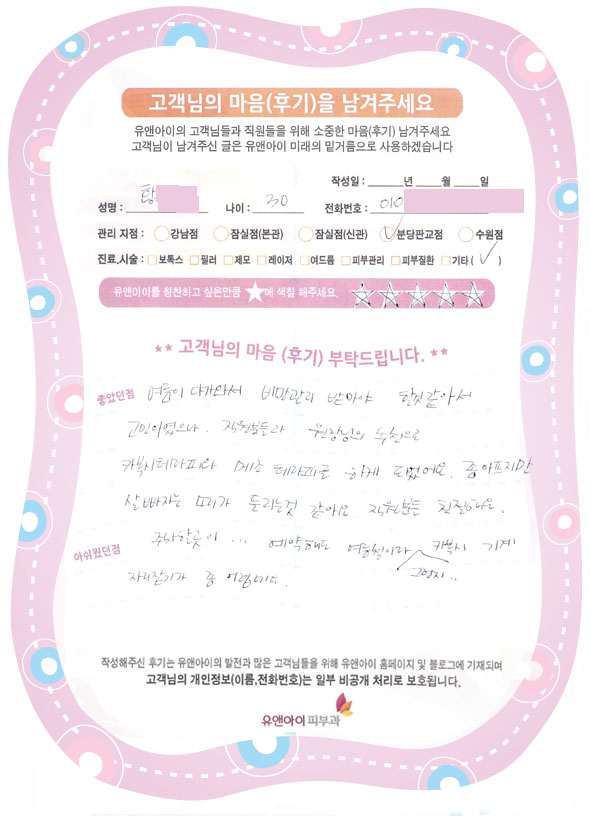 고객님의 마음(후기)을 남겨주세요
유앤아이의 고객님들과 직원들을 위해 소중한 마음(후기) 남겨주세요
고객님이 남겨주신 글은 유앤아이 미래의 밑거름으로 사용하겠습니다
작성일 : 년 월 일
성명 : 탕 나이 : 30 전화번호 : 010
관리 지점 : 강남점 잠실점(본관) 잠실점(신관) 분당판교점 수원점
진료,시술 : 보톡스 필러 제모 레이저 여드름 피부관리 피부질환 기타 ( )
유앤아이를 칭찬하고 싶은만큼 ★에 색칠 해주세요.
** 고객님의 마음 (후기) 부탁드립니다. **
좋았던점 여름이 다가와서 비만관리 받아야 할것같아서
고민이였으나. 직원분들과 원장님의 추천으로
카복시테라피와 메조 테라피를 하게 되었어요. 좀아프지만
살빠지는 소리가 들리는것 같아요. 직원분들 친절해요.
아쉬웠던점 주차할곳이 ... 예약해도 여름철이라 카복시 기계
그런지..
자리잡기가 좀 어렵네다.
작성해주신 후기는 유앤아이의 발전과 많은 고객님들을 위해 유앤아이 홈페이지 및 블로그에 기재되며
고객님의 개인정보(이름,전화번호)는 일부 비공개 처리로 보호됩니다.
유앤아이피부과